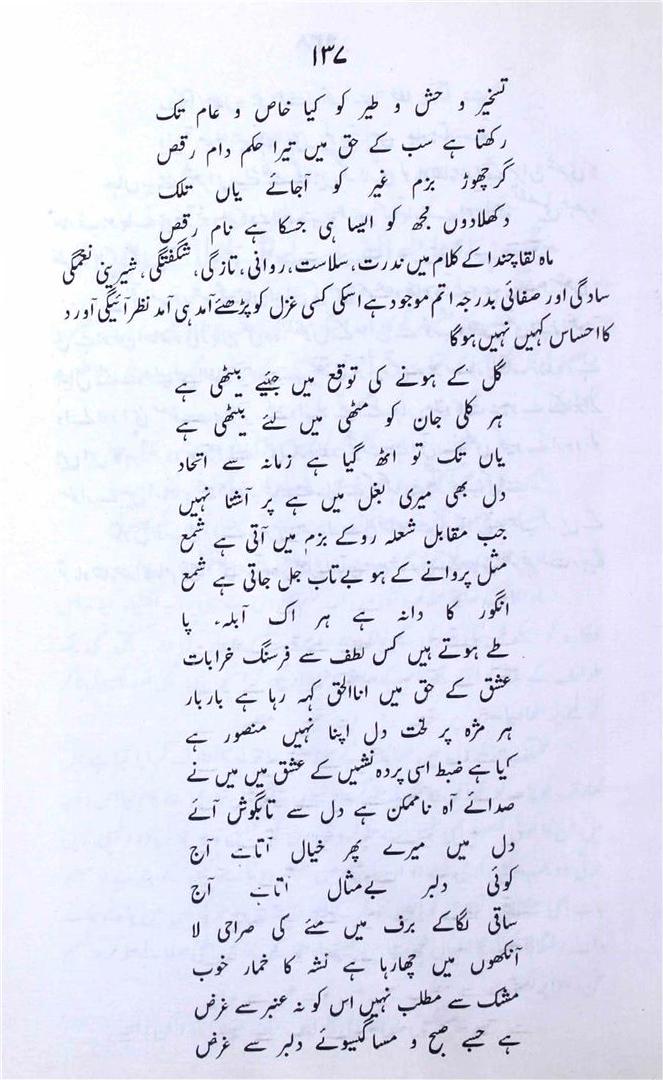 ۱۳۷
تسخیر و حش و طیر کو کیا خاص و عام تک
رکھتا ہے سب کے حق میں تیرا حکم دام رقص
گر چھوڑ بزم غیر کو آجائے یاں تلک
دکھلادوں تجھ کو ایسا ہی جسکا ہے نام رقص
ماہ لقا چندا کے کلام میں ندرت، سلاست، روانی، تازگی، شگفتگی، شیرینی نغمگی
سادگی اور صفائی بدرجہ اتم موجود ہے اسکی کسی غزل کو پڑھئے آمد ہی آمد نظر آئیگی آورد
کا احساس کہیں نہیں ہوگا
گل کے ہونے کی توقع میں جئیے بیٹھی ہے
ہر کلی جان کو مٹھی میں لئے بیٹھی ہے
یاں تک تو اٹھ گیا ہے زمانہ سے اتحاد
دل بھی میری بغل میں ہے پر آشنا نہیں
جب مقابل شعلہ روکے بزم میں آتی ہے شمع
مثل پروانے کے ہو بے تاب جل جاتی ہے شمع
انگور کا دانہ ہے ہر اک آبلہ۔ پا
طے ہوتے ہیں کس لطف سے فرسنگ خرابات
عشق کے حق میں اناالحق کہہ رہا ہے بار بار
ہر مژہ پر لخت دل اپنا نہیں منصور ہے
کیا ہے ضبط اسی پردہ نشیں کے عشق میں میں نے
صدائے آہ ناممکن ہے دل سے تابگوش آئے
دل میں میرے پھر خیال آتاہے آج
کوئی دلبر بے مثال آتاہے آج
ساقی لگاکے برف میں مئے کی صراحی لا
آنکھوں میں چھارہا ہے نشہ کا خمار خوب
مشک سے مطلب نہیں اس کو نہ عنبر سے غرض
ہے جسے صبح و مسا گیسوئے دلبر سے غرض